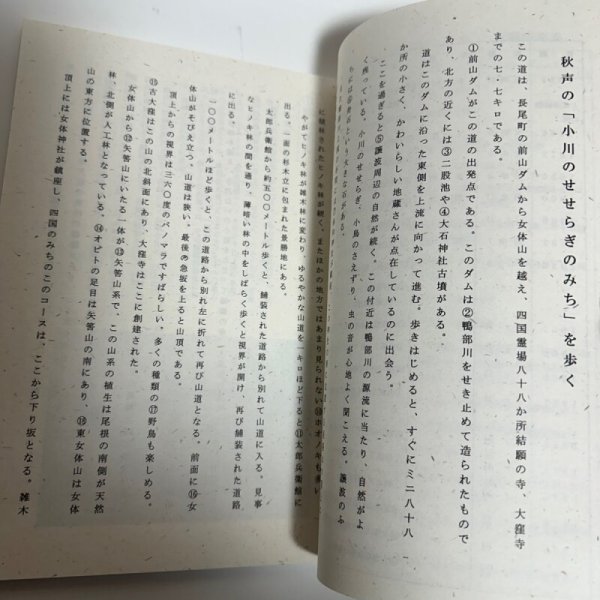 秋声の「小川のせせらぎのみち」を歩く
この道は、長尾町の前山ダムから女体山を越え、四国霊場八十八か所結願の寺、大窪寺
までの七・七キロである。
①前山ダムがこの道の出発点である。このダムは②鴨部川をせき止めて造られたもので
あり、北方の近くには③二股池や④大石神社古墳がある。
道はこのダムに沿った東側を上流に向かって進む。歩きはじめると、すぐにミニ八十八
か所の小さく、かわいらしい地蔵さんが点在しているのに出会う。
ここを過ぎると⑤譲波周辺の自然が続く。この付近は鴨部川の源流に当たり、自然がよ
く残っている。小川のせせらぎ、小鳥のさえずり、虫の音が心地よく聞こえる。譲波のふ
大きな石がある。
ヒノキ林が続く。またほかの地方ではあまり見られない⑩ホオノキも多い
やがてヒノキ林が雑木林に変わり、ゆるやかな山道を一キロほど下ると⑪太郎兵衛館に
出る。一面の杉木立に包まれた景勝地にある。
太郎兵衛館から約五〇〇メートル歩くと、舗装された道路から別れて山道に入る。見事
なヒノキ林の間を通り、薄暗い林の中をしばらく歩くと視界が開け、再び舗装された道路
に出る。
一〇〇メートルほど歩くと、この道路から別れ左に折れて再び山道となる。前面に⑯女
体山がそびえ立つ。山道は狭い。最後の急坂を上ると山頂である。
頂上からの視界は三六〇度のパノマラですばらしい。多くの種類の⑰野鳥も楽しめる。
⑮古大窪はこの山の北斜面にあり、大窪寺はここに創建された。
女体山から⑫矢筈山にいたる一体が⑬矢筈山系で、この山系の植生は尾根の南側が天然
林、北側が人工林となっている。⑭オビトの足目は矢筈山の南にあり、⑱東女体山は女体
山の東方に位置する。
頂上には女体神社が鎮座し、四国のみちのこのコースは、ここから下り坂となる。雑木